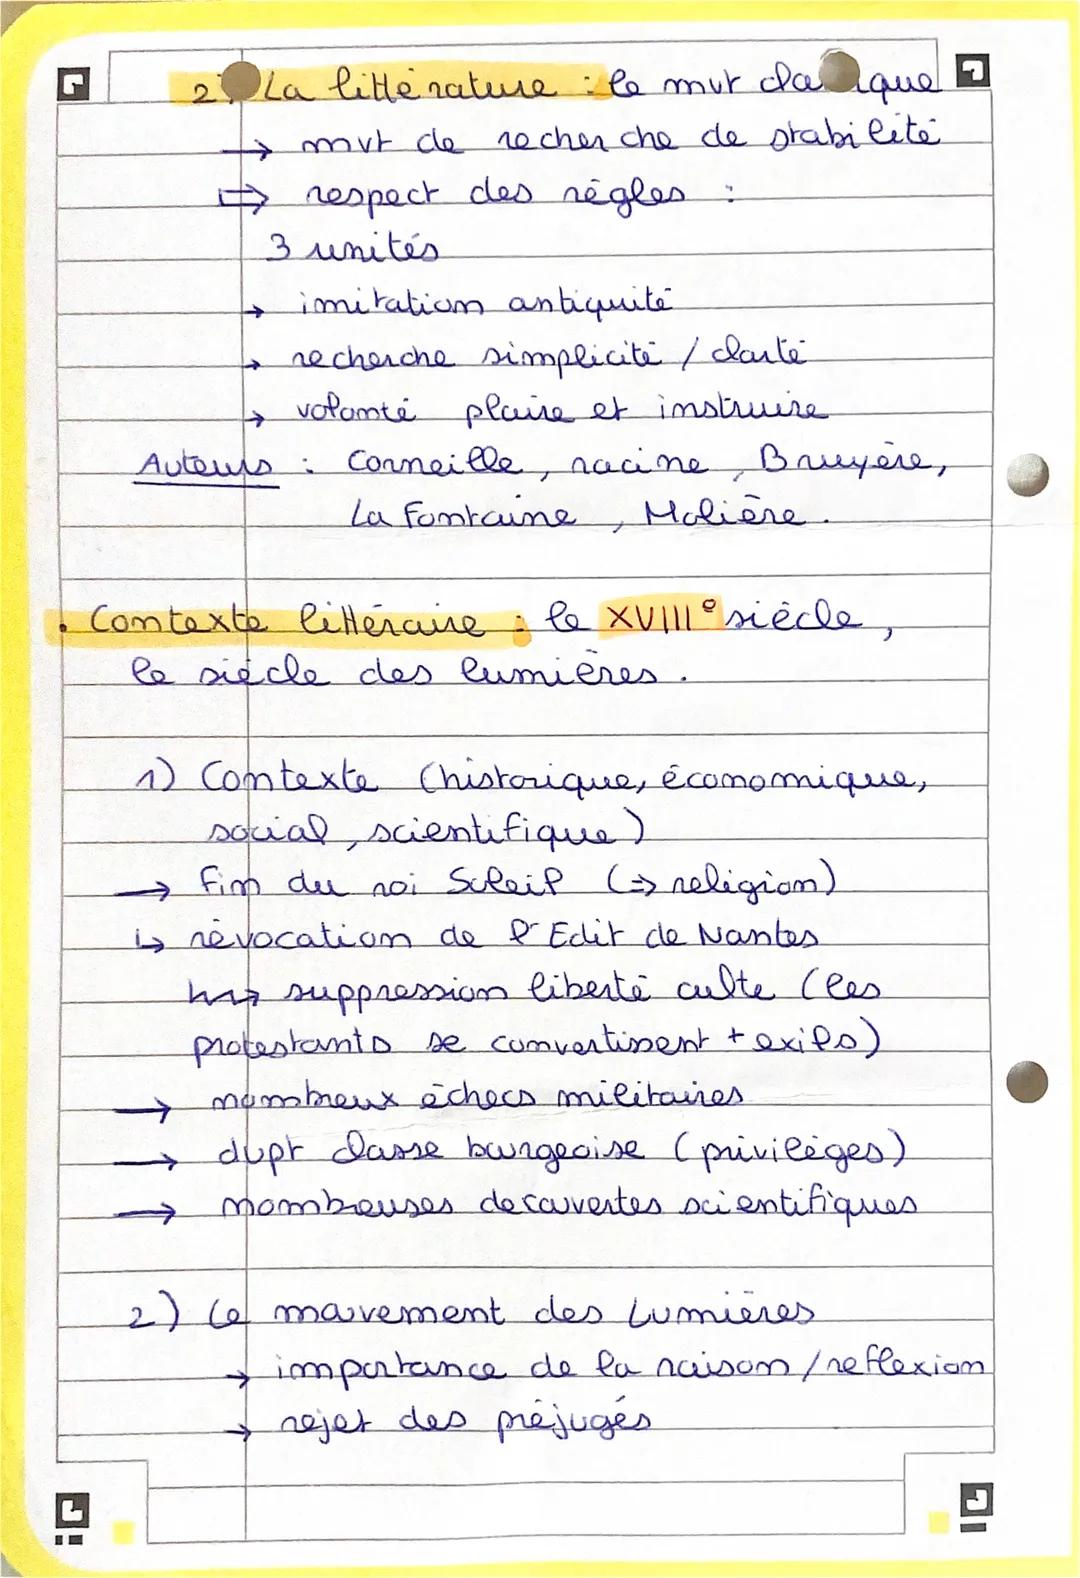 2) La littérature : le mvt classique
→ mvt de recherche de stabilité
⇒ respect des règles :
3 unités
→ imitation antiquité
→ recherche simplicité / clarté
→ volonté plaire et instruire
Auteurs : Corneille, racine, Bruyère,
La Fontaine, Molière.
. Contexte littéraire : le XVIII° siècle,
le siècle des lumières.
1) Contexte (historique, économique,
social, scientifique)
→ fin du roi Soleil (⇒ religion)
↳ révocation de l'Edit de Nantes
↳ suppression liberté culte (les
protestants se convertissent + exils)
→ nombreux échecs militaires
→ dvpt classe bourgeoise (privilèges)
→ nombreuses decouvertes scientifiques
2) Le mouvement des Lumières
→ importance de la raison / reflexion
→ rejet des préjugés